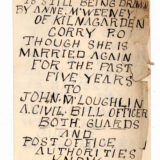 IS STILL BEING DRAWN
BY ANNE McWEENEY
OF KILNAGARDEN
CORRY P.O
THOUGH SHE IS
MARRIED AGAIN
FOR THE PAST
FIVE YEARS
TO
JOHN McLOUGHLIN
A CIVIL BILL OFFICER
BOTH GUARDS
AND
POST OFFICE
AUTHORITIES